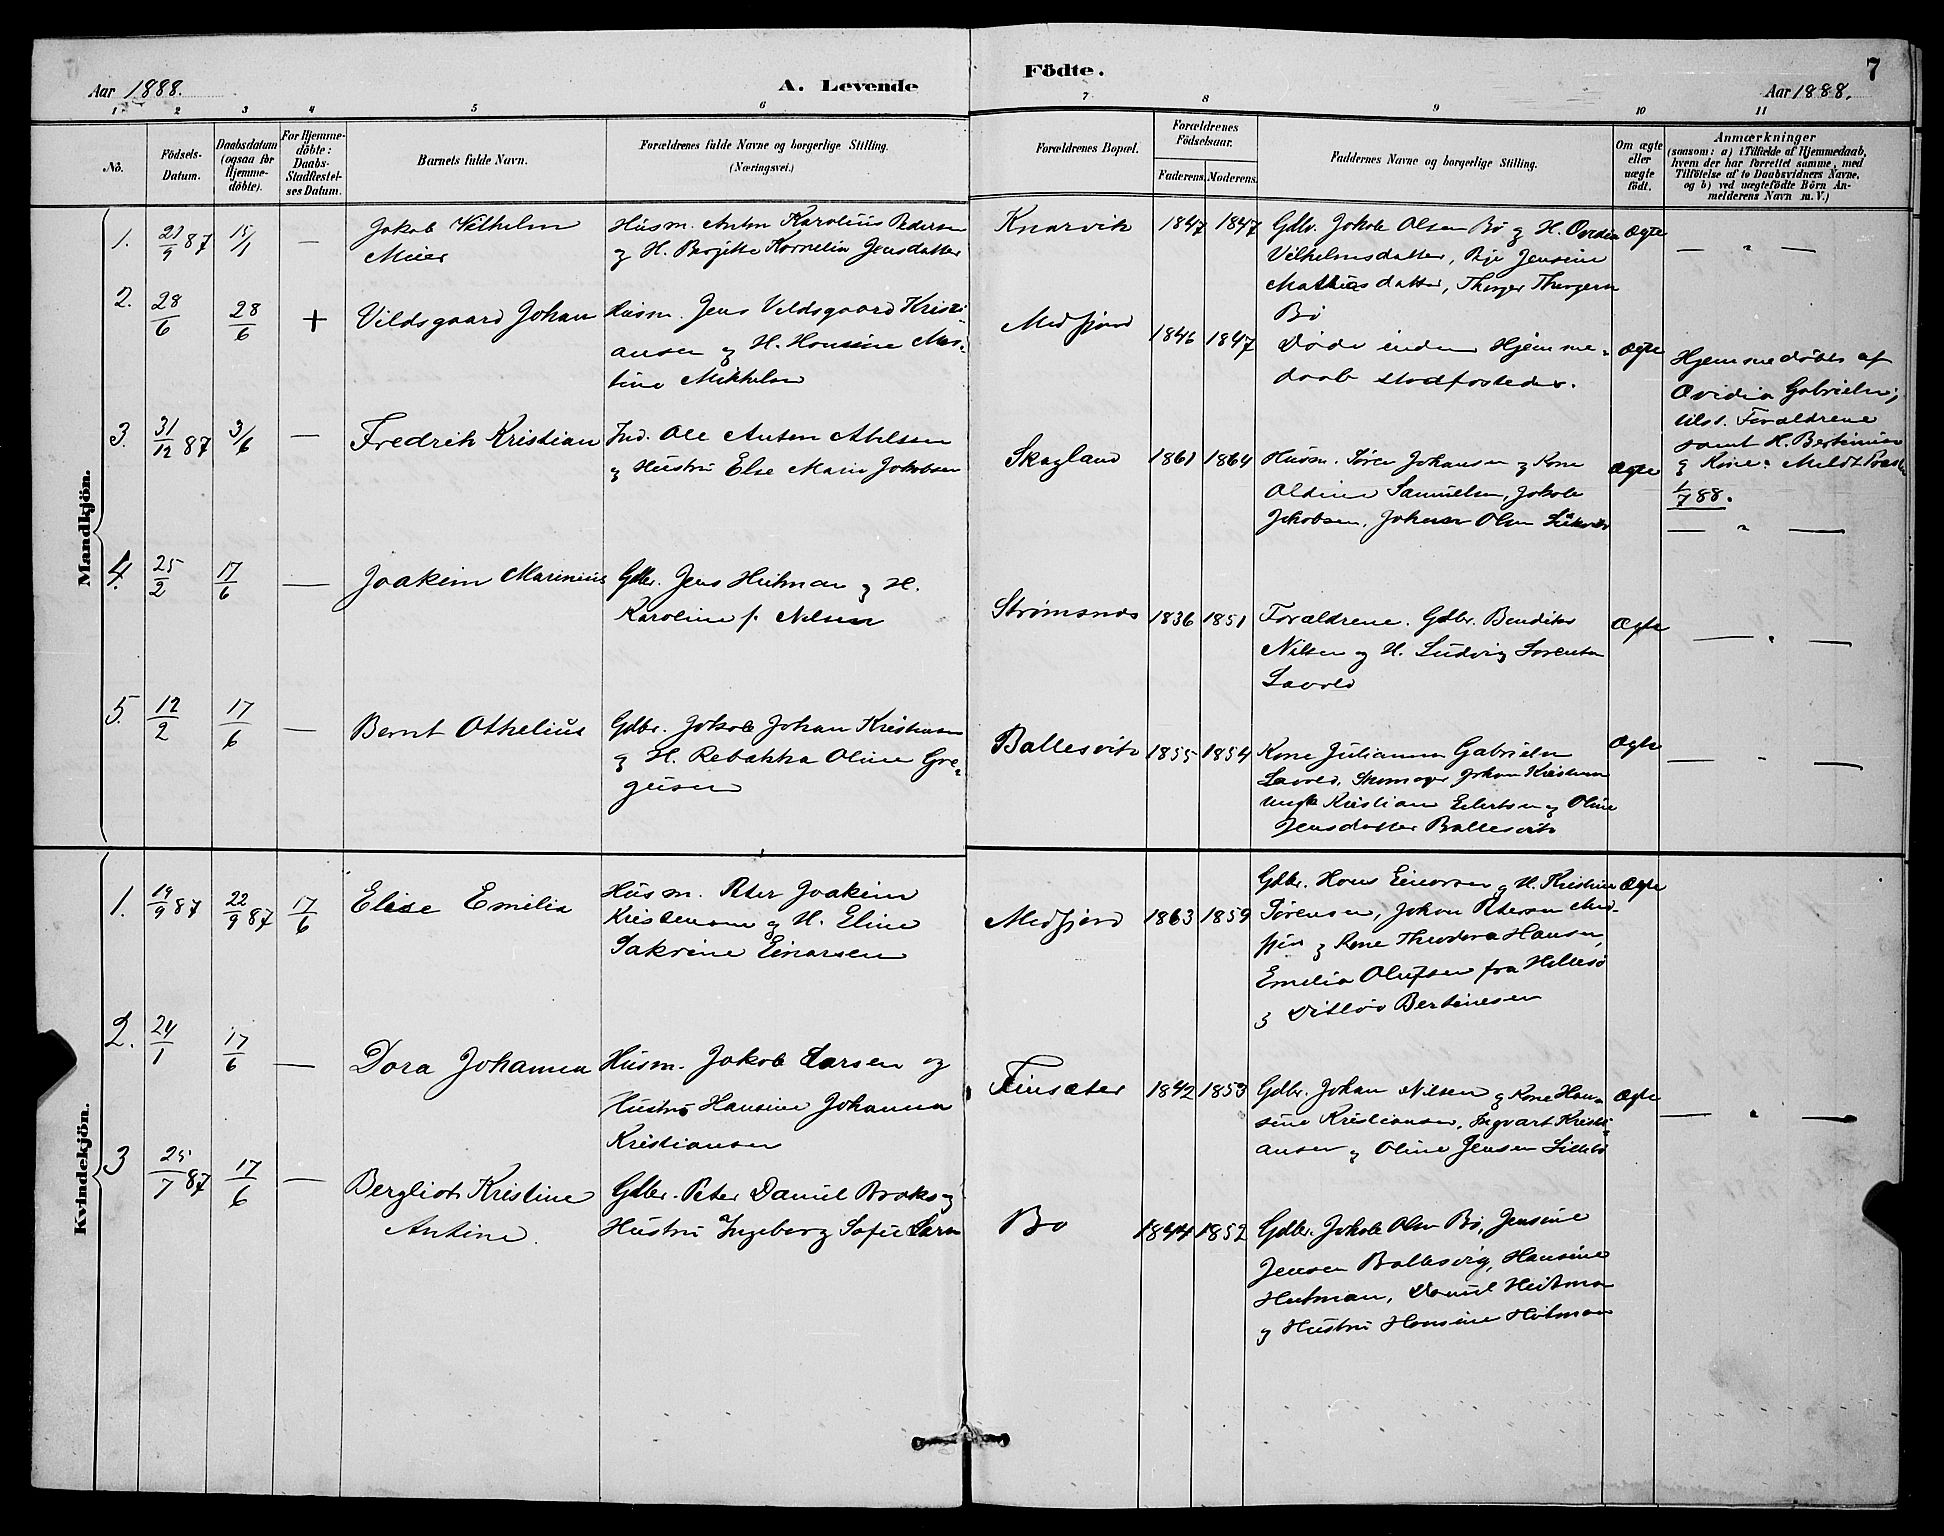 Aar 1888.
A. Levende
Födte.
7
Aar 1888.
1 2 3 4 5 6 7 8 9 10 11
No.
Födsels-Datum.
Daabsdatum (ogsaa for Hjemme-döbte).
For Hjemme-döbte: Daabs-Stadfæstel-ses Datum.
Barnets fulde Navn.
Forældrenes fulde Navne og borgerlige Stilling. (Næringsvei.)
Forældrenes Bopæl.
Forældrenes Födselsaar.
Faderens. Moderens.
Faddernes Navne og borgerlige Stilling.
Om ægte eller uægte födt.
Anmærkninger
(saasom: a) i Tilfælde af Hjemmedaab,
hvem der har forrettet samme, med
Tilföielse af to Daabsvidners Navne,
og b) ved uægtefödte Börn An-
melderens Navn m. V.)
Mandkjön.
1. 21/9 87 15/1 — Jakob Vilhelm
Meier
Husm. Anton Karolius Pedersen
og H. Bergitte Kornelia Jensdatter
Knarvik 1847 1847
Gdbr. Jakob Olsen Bø og H. Ovidia
Vilhelmsdatter, Pige Jensine
Mathiasdatter,
Bø
Ægte — " —
2. 28/6 28/6 + Vildsgaard Johan
Husm. Jens Vildsgaard Kristi-
ansen og H. Hansine Mar-
tine Mikkelsen
Medfjord 1846 1847
Døde inden Hjemme-
daab stadfæstedes.
Ægte
Hjemmedøbt af
Ovidia Gabrielsen,
tilst. Forældrene
samt H. Bertinius
og Kone. Meldt
1/7 88.
3. 31/12 87 3/6 — Fredrik Kristian
Ind. Ole Anton Abelsen
og Hustru Else Marie Jakobsen
Skagland 1861 1864
Husm. Søren Johansen og Kone
Oldine Samuelsen, Jakob
Jakobsen, Johan Olsen
Ægte — " —
4. 25/2 17/6 — Joakim Marinius
Gdbr. Jens Heitman og H.
Karoline f. Nilsen
Strømsnæs 1836 1851
Forældrene. Gdbr. Benditus
Nilsen og H. Ludvig Sørensen
Lavold
Ægte — " —
5. 12/2 17/6 — Bernt Othelius
Gdbr. Jakob Johan Kristiansen
og H. Rebakka Oline Gre-
gusen
Ballesvik 1855 1854
Kone Julianna Gabrielsen
Lavold, Skomager Johan Kristiansen
Ungk Kristian Eilertsen og Oline
Jensdatter Ballesvik
Ægte — " —
Kvindekjön.
1. 14/9 87 22/9 87 17/6 Elise Emilie
Husm. Peter Joakim
Kristensen og H. Eline
Sakrine Einarsen
Medfjord 1863 1859
Gdbr. Hans Einarsen og H. Kristine
Sørensen, Johan Petersen Med-
fjord og Kone Theodora Hansen,
Emelia Olufsen fra Hillesø
og Ditløv Bertinesen
Ægte
2. 24/1 17/6 — Dora Johanna
Husm. Jakob Larsen og
Hustru Hansine Johanna
Kristiansen
Finsæter 1842 1853
Gdbr. Johan Nilsen og Kone Han-
sine Kristiansen, Ingvart Kristi-
ansen og Oline Jensen
Ægte — " —
3 25/7 87 17/6 — Bergliot Kristine
Antine.
Gdbr. Peter Daniel Broks og
Hustru Ingeborg Sofie
Bø 1844 1852
Gdbr. Jakob Olsen Bø, Jensine
Jensen Ballesvig, Hansine
Heitman, Daniel Heitman
og Hustru Hansine Heitman